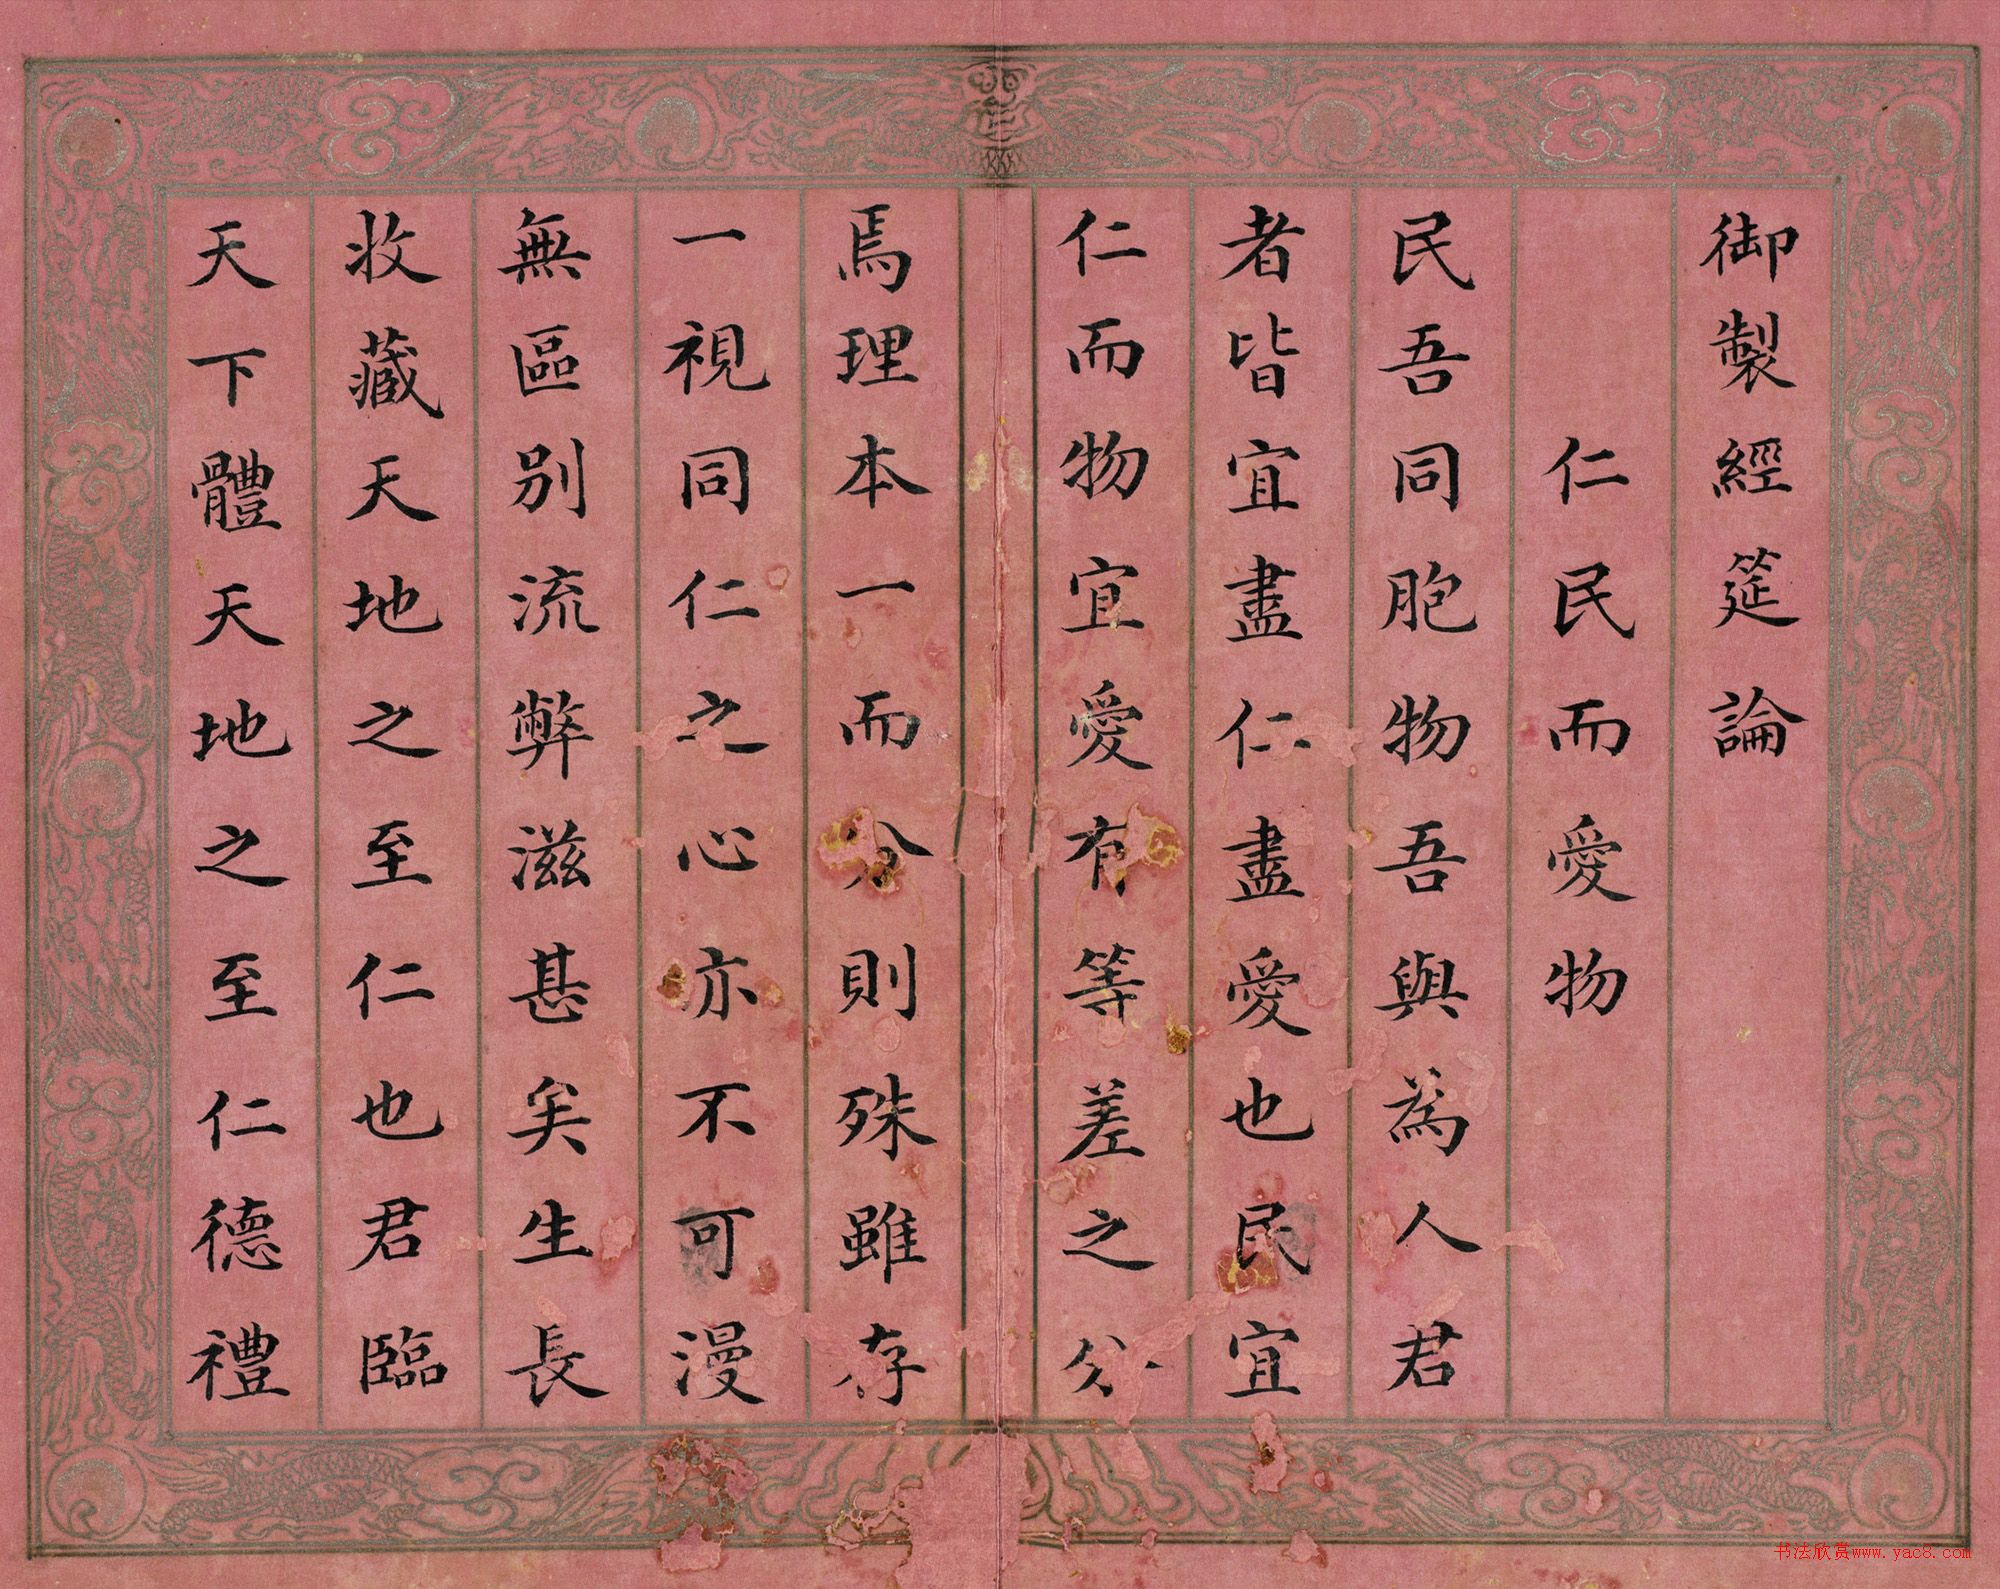 御製經筵論
仁民而愛物
民吾同胞物吾與為人君
者皆宜盡仁盡愛也民宜
仁而物宜愛有等差之分
焉理本一而分則殊雖存
一視同仁之心亦不可漫
無區别流弊滋甚矣生長
收藏天地之至仁也君臨
天下體天地之至仁德禮
书法欣赏www.yac8.com